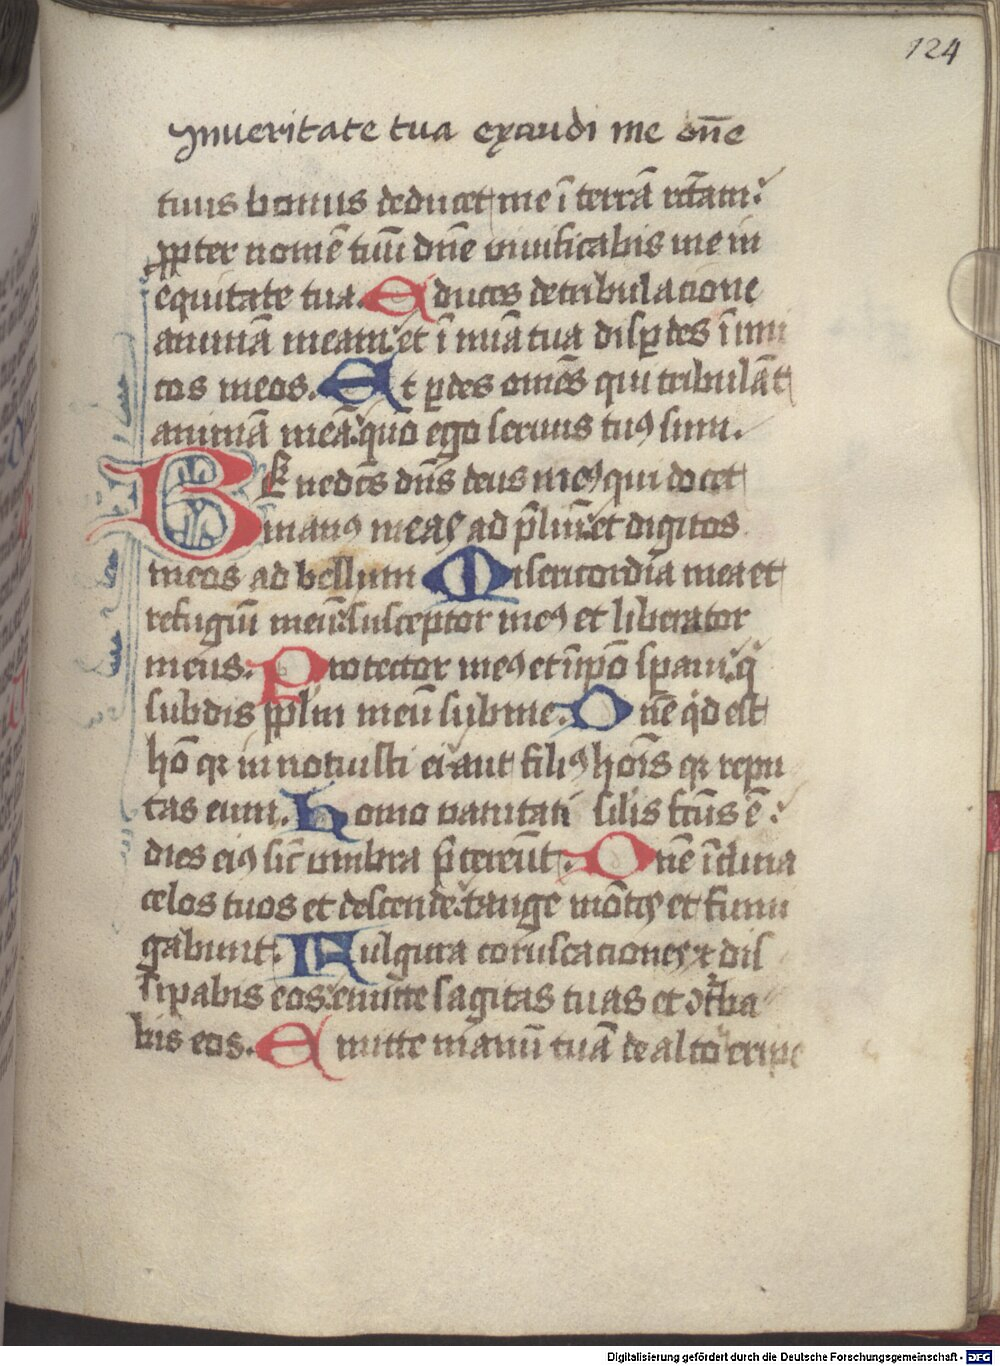 124
Inueritate tua exaudi me dn̄e
tuus bonus deducet me ī terrā rc̄tam:
ꝓpter nomē tuū dn̄e viuificabis me in
equitate tua. Educes detribulacione
animā meam: et ī mīa tua disꝑdes īimi
cos meos. Et ꝑdes omēs qui tribulāt
animā meā: quō ego seruus tuꝰ sum.
BEnedc̄s dn̄s deus meꝰ qui docet
manꝰ meas ad p̄liū: et digitos
meos ad bellum Misericordia mea et
refugiū meū: susceptor meꝰ et liberator
meus. Protector meꝰ et īip̄o sꝑaui: q̄
subdis pplm meū sub me. Dn̄e qd est
hō qꝛ innotuisti ei aut filiꝰ hoīs qꝛ repu
tas eum. Homo vanitati silis fc̄us ē:
dies eiꝰ sic̄ umbra p̄tereūt. Dn̄e īclina
celos tuos et descende: tange mōtes et fumi
gabunt. Fulgura coruscaciones ⁊ dis
sipabis eos: emitte sagitas tuas et ↄt̄ba
bis eos. Emitte manū tuā de alto eripe
Digitalisierung gefördert durch die Deutsche Forschungsgemeinschaft - DFG